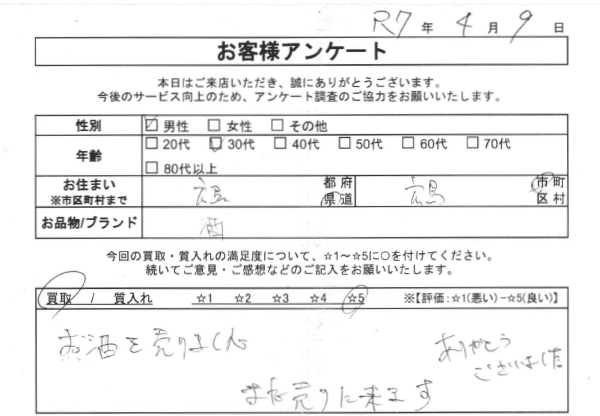 R7 年 4 月 9 日
お客様アンケート
本日はご来店いただき、誠にありがとうございます。
今後のサービス向上のため、アンケート調査のご協力をお願いいたします。
性別 ☑ 男性 ☐ 女性 ☐ その他
年齢 ☐ 20代 ☑ 30代 ☐ 40代 ☐ 50代 ☐ 60代 ☐ 70代
☐ 80代以上
お住まい 広島 都府 広島 市町
※市区町村まで 県道 区村
お品物/ブランド 酒
今回の買取・質入れの満足度について、☆1～☆5に○を付けてください。
続いてご意見・ご感想などのご記入をお願いいたします。
買取 / 質入れ ☆1 ☆2 ☆3 ☆4 ☆5 ※【評価:☆1(悪い)－☆5(良い)】
お酒を売りました
ありがとう
ございました
また売りに来ます